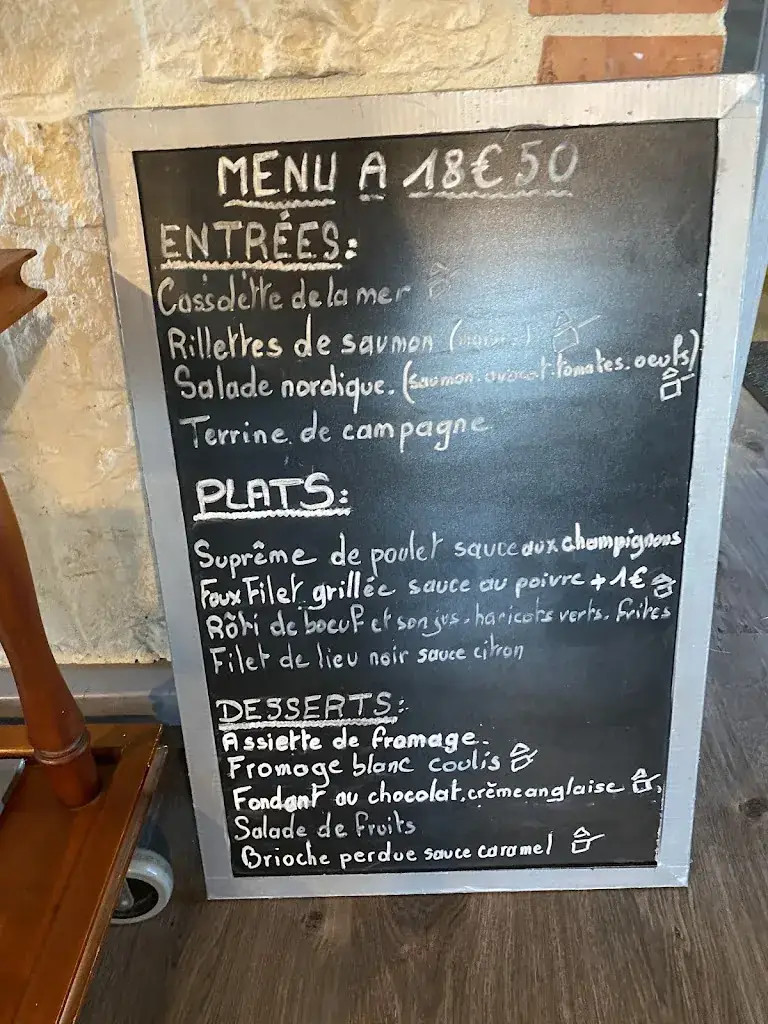 MENU A 18€50
ENTRÉES:
Cassolette de la mer
Rillettes de saumon
Salade nordique. (saumon. avocat. tomates. oeufs)
Terrine de campagne
PLATS:
Suprême de poulet sauce aux champignons
Faux Filet grillée sauce au poivre + 1€
Rôti de boeuf et son jus. haricots verts. frites
Filet de lieu noir sauce citron
DESSERTS:
Assiette de fromage.
Fromage blanc coulis
Fondant au chocolat, crème anglaise
Salade de fruits
Brioche perdue sauce caramel